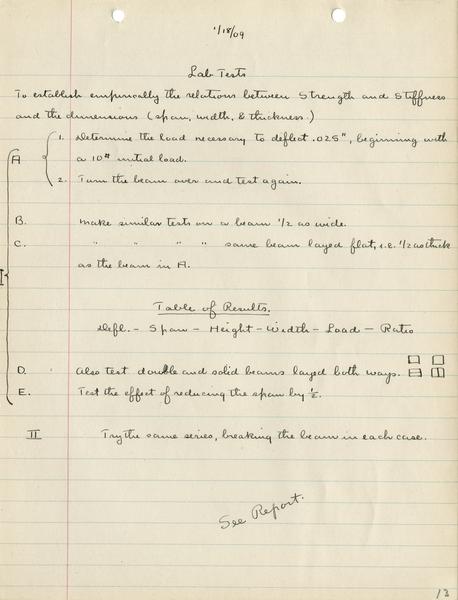 1/18/09
Lab Tests
To establish empirically the relations between Strength and Stiffness
and the dimensions (span, width, & thickness.)
A { 1. Determine the load necessary to deflect .025", beginning with
a 10# initial load.
2. Turn the beam over and test again.
B. Make similar tests on a beam 1/2 as wide.
C. " " " " same beam layed flat, i.e. 1/2 as thick
as the beam in A.
I
Table of Results.
Defl. - Span - Height - Width - Load - Ratio
D. Also test double and solid beams layed both ways.
E. Test the effect of reducing the span by 1/2.
II Try the same series, breaking the beam in each case.
See Report.
13